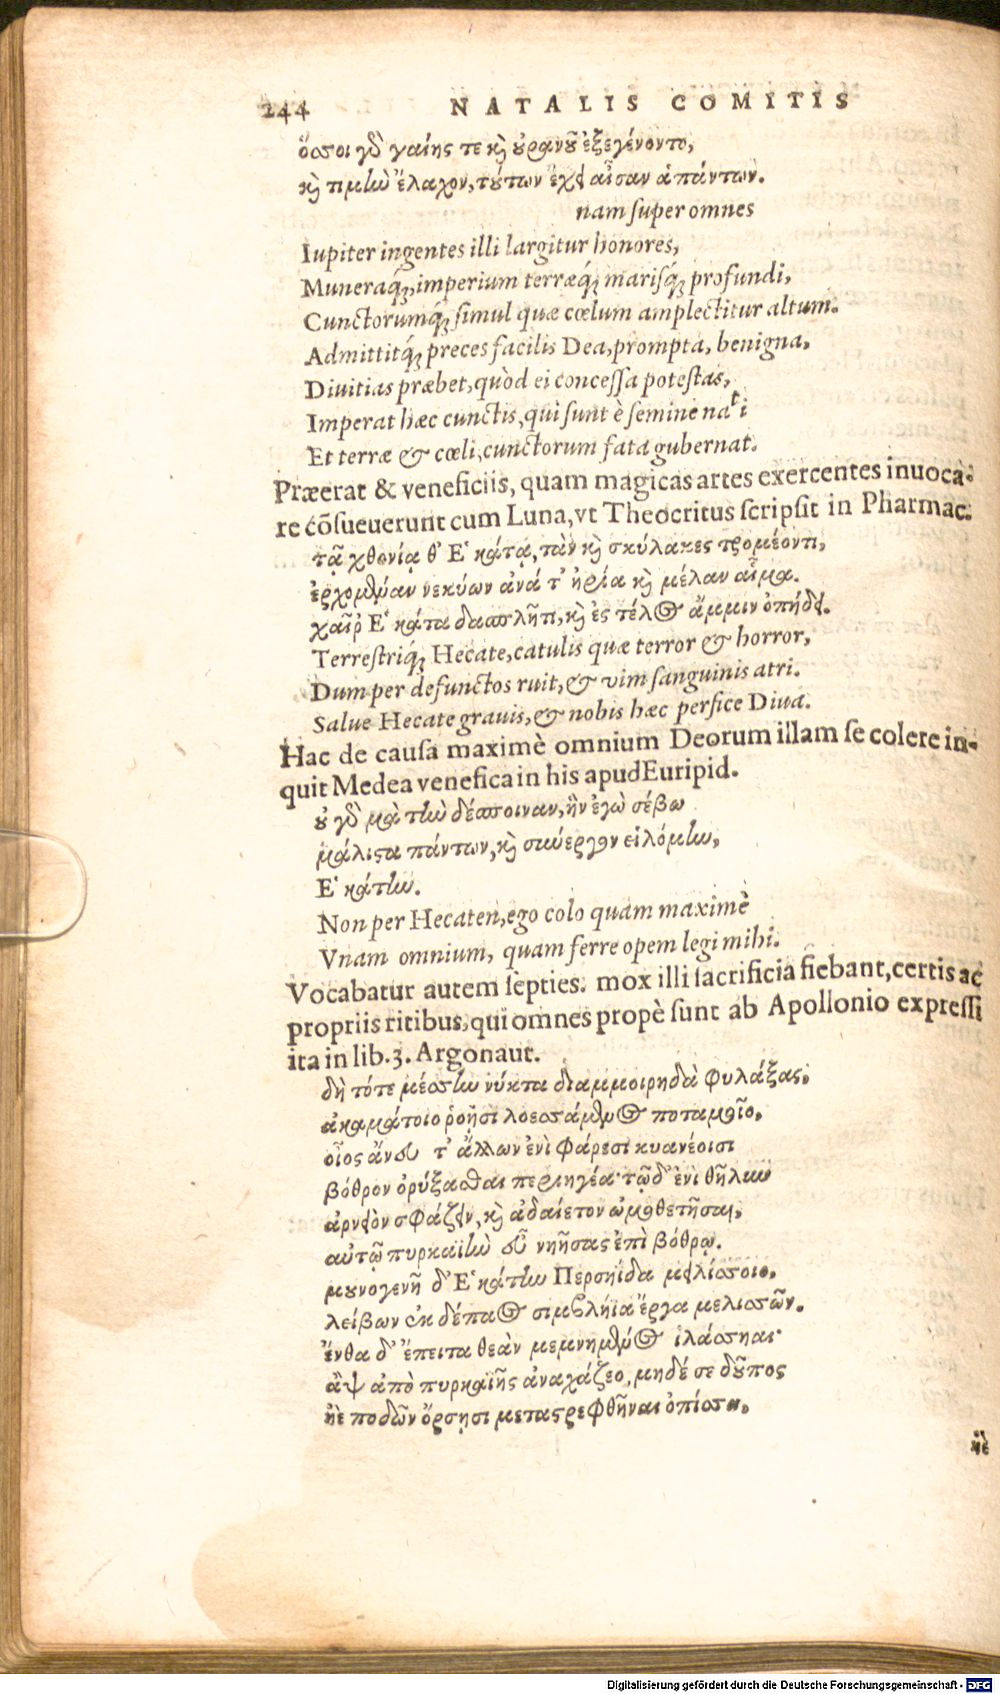 244 NATALIS COMITIS
ὅσσοι γὸ γαίης τε κὶ ȣ̓ρανȣ͂ ἐξεγένοντο,
κὶ τιμὴν ἔλαχον, τȣ́των ἔχει αἶσαν ἁπάντων.
nam ſuper omnes
Iupiter ingentes illi largitur honores,
Muneraq́;, imperium terræq́; mariſq́; profundi,
Cunctorumq́; ſimul quæ cœlum amplectitur altum.
Admittitq́; preces facilis Dea, prompta, benigna,
Diuitias præbet, quòd ei conceſſa poteſtas,
Imperat hæc cunctis, qui ſunt è ſemine nati
Et terræ & cœli, cunctorum fata gubernat.
Præerat & veneficiis, quam magicas artes exercentes inuoca-
re cōſueuerunt cum Luna, vt Theocritus ſcripſit in Pharmac.
τᾷ χθονίᾳ θ' Ἑκάτᾳ, τὰν κὶ σκύλακες τρομέοντι,
ἐρχομέναν νεκύων ἀνά τ' ἠρία κὶ μέλαν αἷμα.
χαῖρ' Ἑκάτα δασπλῆτι, κὶ ἐς τέλος ἄμμιν ὀπήδει.
Terreſtriq́; Hecate, catulis quæ terror & horror,
Dum per defunctos ruit, & vim ſanguinis atri.
Salue Hecate grauis, & nobis hæc perfice Diua.
Hac de cauſa maximè omnium Deorum illam ſe colere in-
quit Medea venefica in his apud Euripid.
ȣ̓ γὸ μὰ τὴν δέσποιναν, ἣν ἐγὼ σέβω
μάλιστα πάντων, κὶ σιωύεργον εἱλόμην,
Ἑκάτην.
Non per Hecaten, ego colo quam maximè
Vnam omnium, quam ferre opem legi mihi.
Vocabatur autem ſepties. mox illi ſacrificia fiebant, certis ac
propriis ritibus, qui omnes propè ſunt ab Apollonio expreſſi
ita in lib. 3. Argonaut.
δὴ τότε μέσσην νύκτα διαμμοιρηδὰ φυλάξας,
ἀκαμάτοιο ῥοῇσι λοεσσάμενος ποταμοῖο,
οἶος ἄνευ τ' ἄλλων ἐνὶ φάρεσι κυανέοισι
βόθρον ὀρύξασθαι περιηγέα· τῷ δ' ἐνὶ θῆλυν
ἀρνειὸν σφάζειν, κὶ ἀδαίετον ὠμοθετῆσαι,
αὐτῷ πυρκαϊὴν εὖ νηήσας ἐπὶ βόθρῳ.
μȣνογενῆ δ' Ἑκάτην Περσηΐδα μειλίσσοιο,
λείβων ἐκ δέπαος σιμβλήϊα ἔργα μελισσῶν.
ἔνθα δ' ἔπειτα θεὰν μεμνημένος ἱλάσσηαι·
ἂψ ἀπὸ πυρκαϊῆς ἀναχάζεο, μηδέ σε δȣ͂πος
ἠὲ ποδῶν ὄρσῃσι μεταστρεφθῆναι ὀπίσσω,
ἠὲ
Digitalisierung gefördert durch die Deutsche Forschungsgemeinschaft - DFG